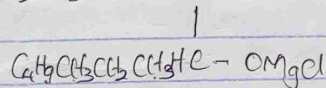 |
C4H9CCH3CCH2CCH3HC - OMgCl